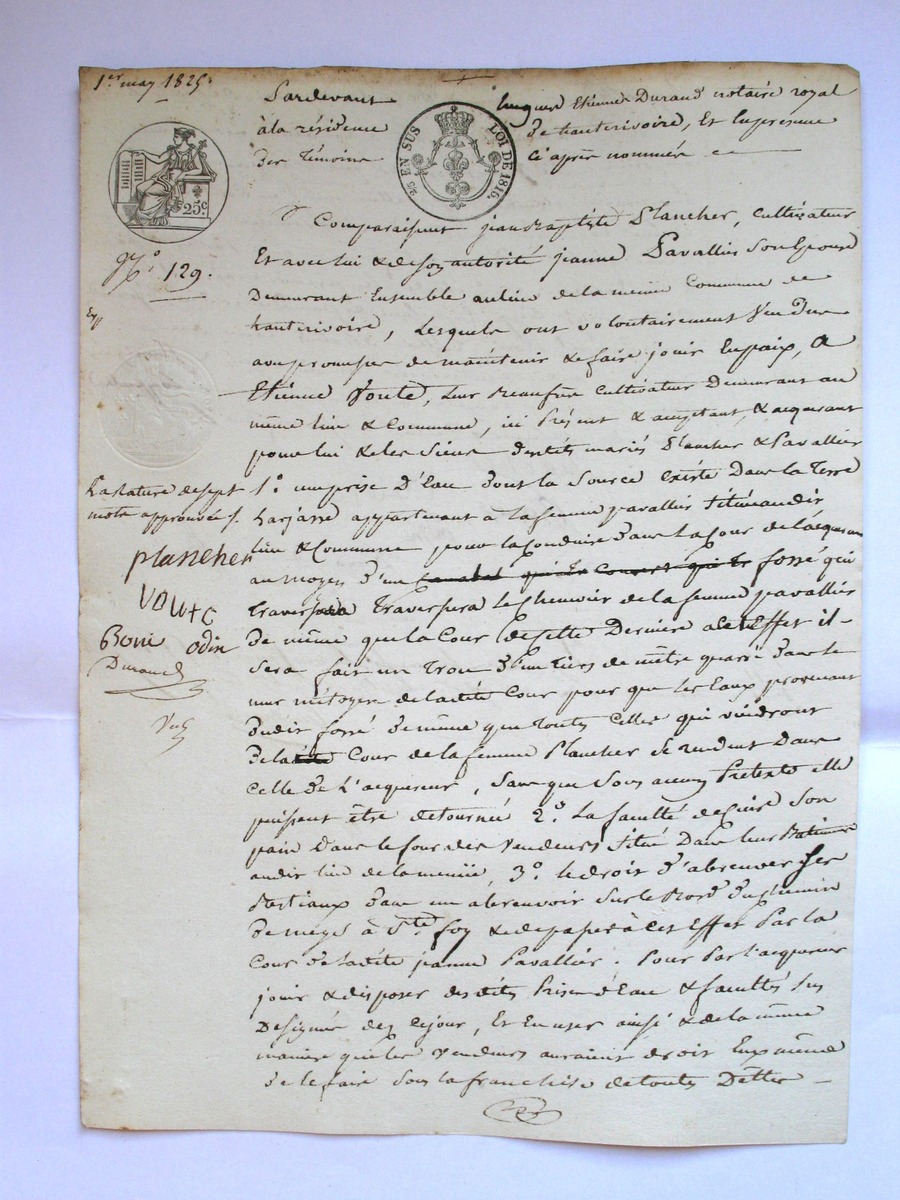 1.er may 1825.
Pardevant hugues Etienne Durand notaire royal
à la résidence de hauterivoire, Et En presence
des Témoins ci après nommés
25 EN SUS LOI DE 1816.
25.c
N.o 129.
Comparaissent jean Baptiste Plancher, cultivateur
Et avec lui & de son autorité jeanne Pavallier Son Epouse
Demeurant Ensemble au lieu de la menue Commune de
hauterivoire, Lesquels ont volontairement Vendu
avec promesse de maintenir & faire jouir En paix, A
Etienne Voute, leur beaufrère cultivateur Demeurant au
même lieu & Commune, ici Présent & acceptant, & acquerant
pour lui & les Siens desdits mariés Plancher & Pavallier
1.o une prise D'Eau dont la Source Existe Dans la Terre
appartenant à la femme pavallier Située audit
lieu & Commune pour la Conduire dans la Cour de l'acquereur
au moyen d'un fossé qui
Traversera Le de la femme pavallier
de même que la Cour de cette Dernière a cet Effet il
Sera fait un Trou d'un tiers de mètre quarré dans le
mur mitoyen de ladite Cour pour que les Eaux provenant
dudit fossé de même que toutes Celles qui viendront
de la Cour de la femme Plancher Se rendent Dans
Celle de L'acquereur, Sans que Sous aucun Pretexte elle
puissent être detournée 2.o La faculté de Cuire Son
pain dans le four des Vendeurs Situé Dans leur Batiment
audit lieu de la menue, 3.o le droit d'abreuver Ses
Bestiaux dans un abreuvoir Sur le Bord du chemin
de meys à S.te foy & de passer à cet Effet Par la
Cour de ladite jeanne Pavallier. Pour Par l'acquereur
jouir & disposer desdits Prise d'Eau & facultés Sus
Designée dez cejour, Et En user ainsi & de la même
maniere que les Vendeurs auraient droit Eux même
de le faire Sous la franchise de toutes Dettes
La rature de sept
mots approuvée
plancher
voute
Boni odin
Durand